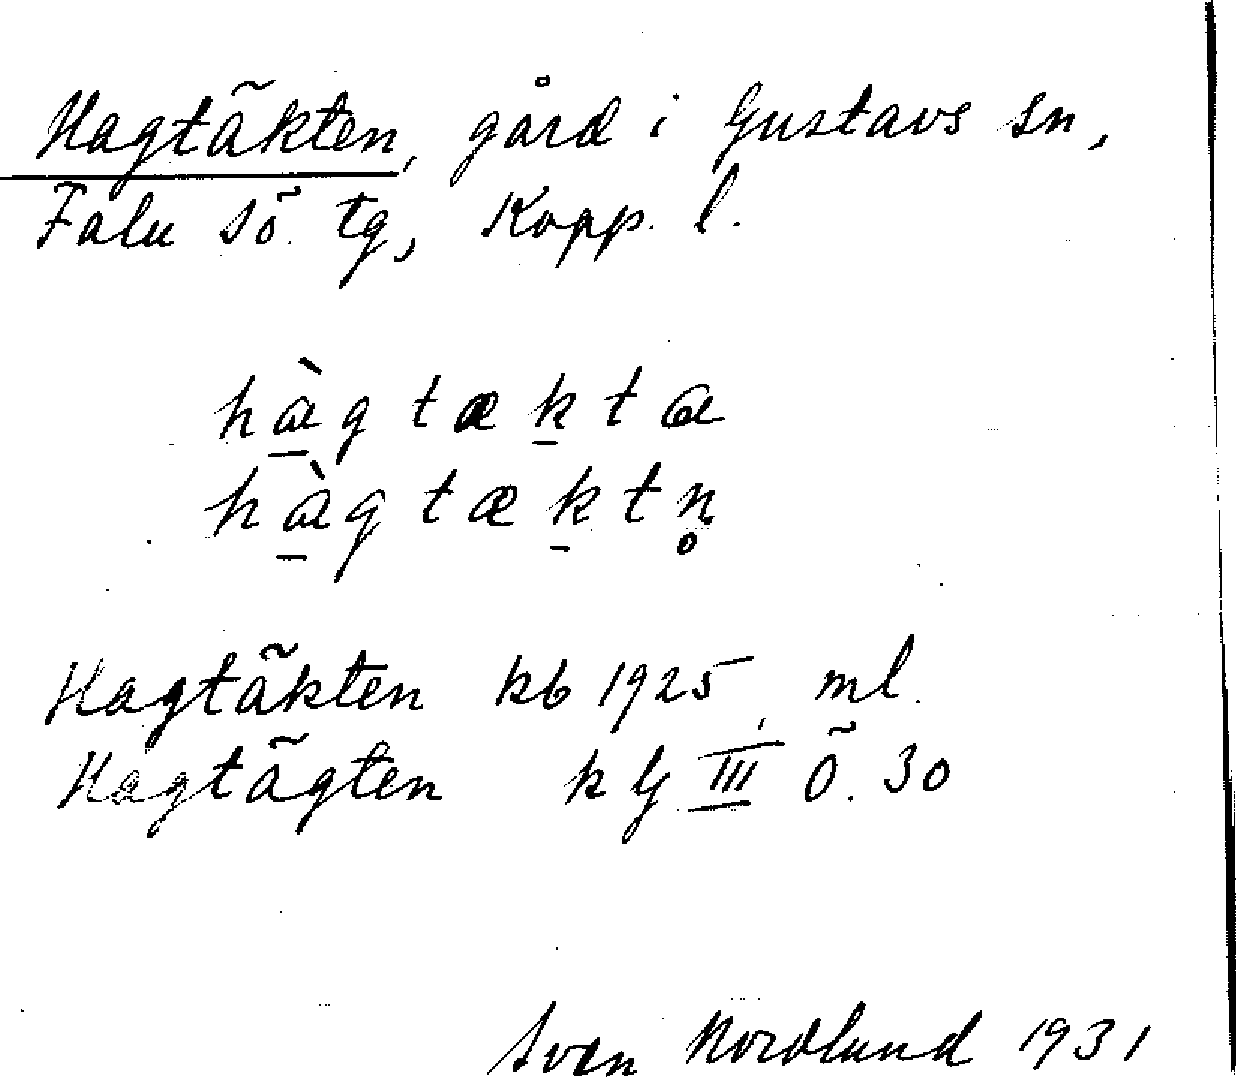 Hagtäkten, gård i Gustavs sn,
Falu sö. tg, Kopp. l.
hàgtækta
hàgtæktn̥
Hagtäkten kb 1925, ml.
Hagtägten k G III Ö. 30
Sven Nordlund 1931